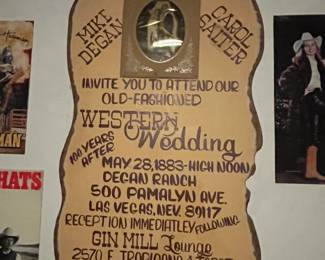 MIKE DEGAN
CAROL SALTER
INVITE YOU TO ATTEND OUR
OLD-FASHIONED
WESTERN Wedding
100 YEARS AFTER
MAY 28, 1883-HIGH NOON
DEGAN RANCH
500 PAMALYN AVE.
LAS VEGAS, NEV. 89117
RECEPTION IMMEDIATLEY FOLLOWING
GIN MILL Lounge
2570 E. TROPICANA
MAN
HATS